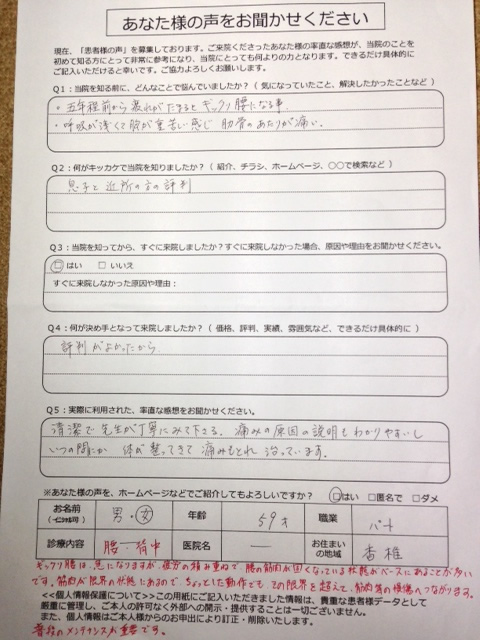 あなた様の声をお聞かせください
現在、「患者様の声」を募集しております。ご来院くださったあなた様の率直な感想が、当院のことを
初めて知る方にとって非常に参考になり、当院にとっても何よりの力となります。できるだけ具体的に
ご記入いただけると幸いです。ご協力よろしくお願いします。
Q1：当院を知る前に、どんなことで悩んでいましたか？（ 気になっていたこと、解決したかったことなど ）
・五年程前から疲れがたまるとギックリ腰になる事
・呼吸が浅くて胸が重苦しい感じ 肋骨のあたりが痛い.
Q2：何がキッカケで当院を知りましたか？（ 紹介、チラシ、ホームページ、○○で検索など ）
息子と近所の方の評判
Q3：当院を知ってから、すぐに来院しましたか？すぐに来院しなかった場合、原因や理由をお聞かせください。
□ はい □ いいえ
すぐに来院しなかった原因や理由：
Q4：何が決め手となって来院しましたか？（ 価格、評判、実績、雰囲気など、できるだけ具体的に ）
評判がよかったから
Q5：実際に利用された、率直な感想をお聞かせください。
清潔で先生が丁寧にみて下さる. 痛みの原因の説明もわかりやすいし
いつの間にか 体が整ってきて 痛みもとれ 治っています.
※あなた様の声を、ホームページなどでご紹介してもよろしいですか？ □はい □匿名で □ダメ
お名前 男・女 年齢 59才 職業 パート
（イニシャル可）
診療内容 腰・背中 医院名 — お住まいの地域 香椎
ギックリ腰は、急になりますが、疲労の積み重ねで、腰の筋肉が固くなっている状態がベースにあることが多い
です。筋肉が限界の状態にあるので、ちょっとした動作でも、その限界を超えて、筋肉等の損傷へつながります。
<<個人情報保護について>>この用紙にご記入いただきました情報は、貴重な患者様データとして
厳重に管理し、ご本人の許可なく外部への開示・提供することは一切ございません。
また、個人情報はご本人様からのお申出により訂正・削除いたします。
普段のメンテナンスが重要です。